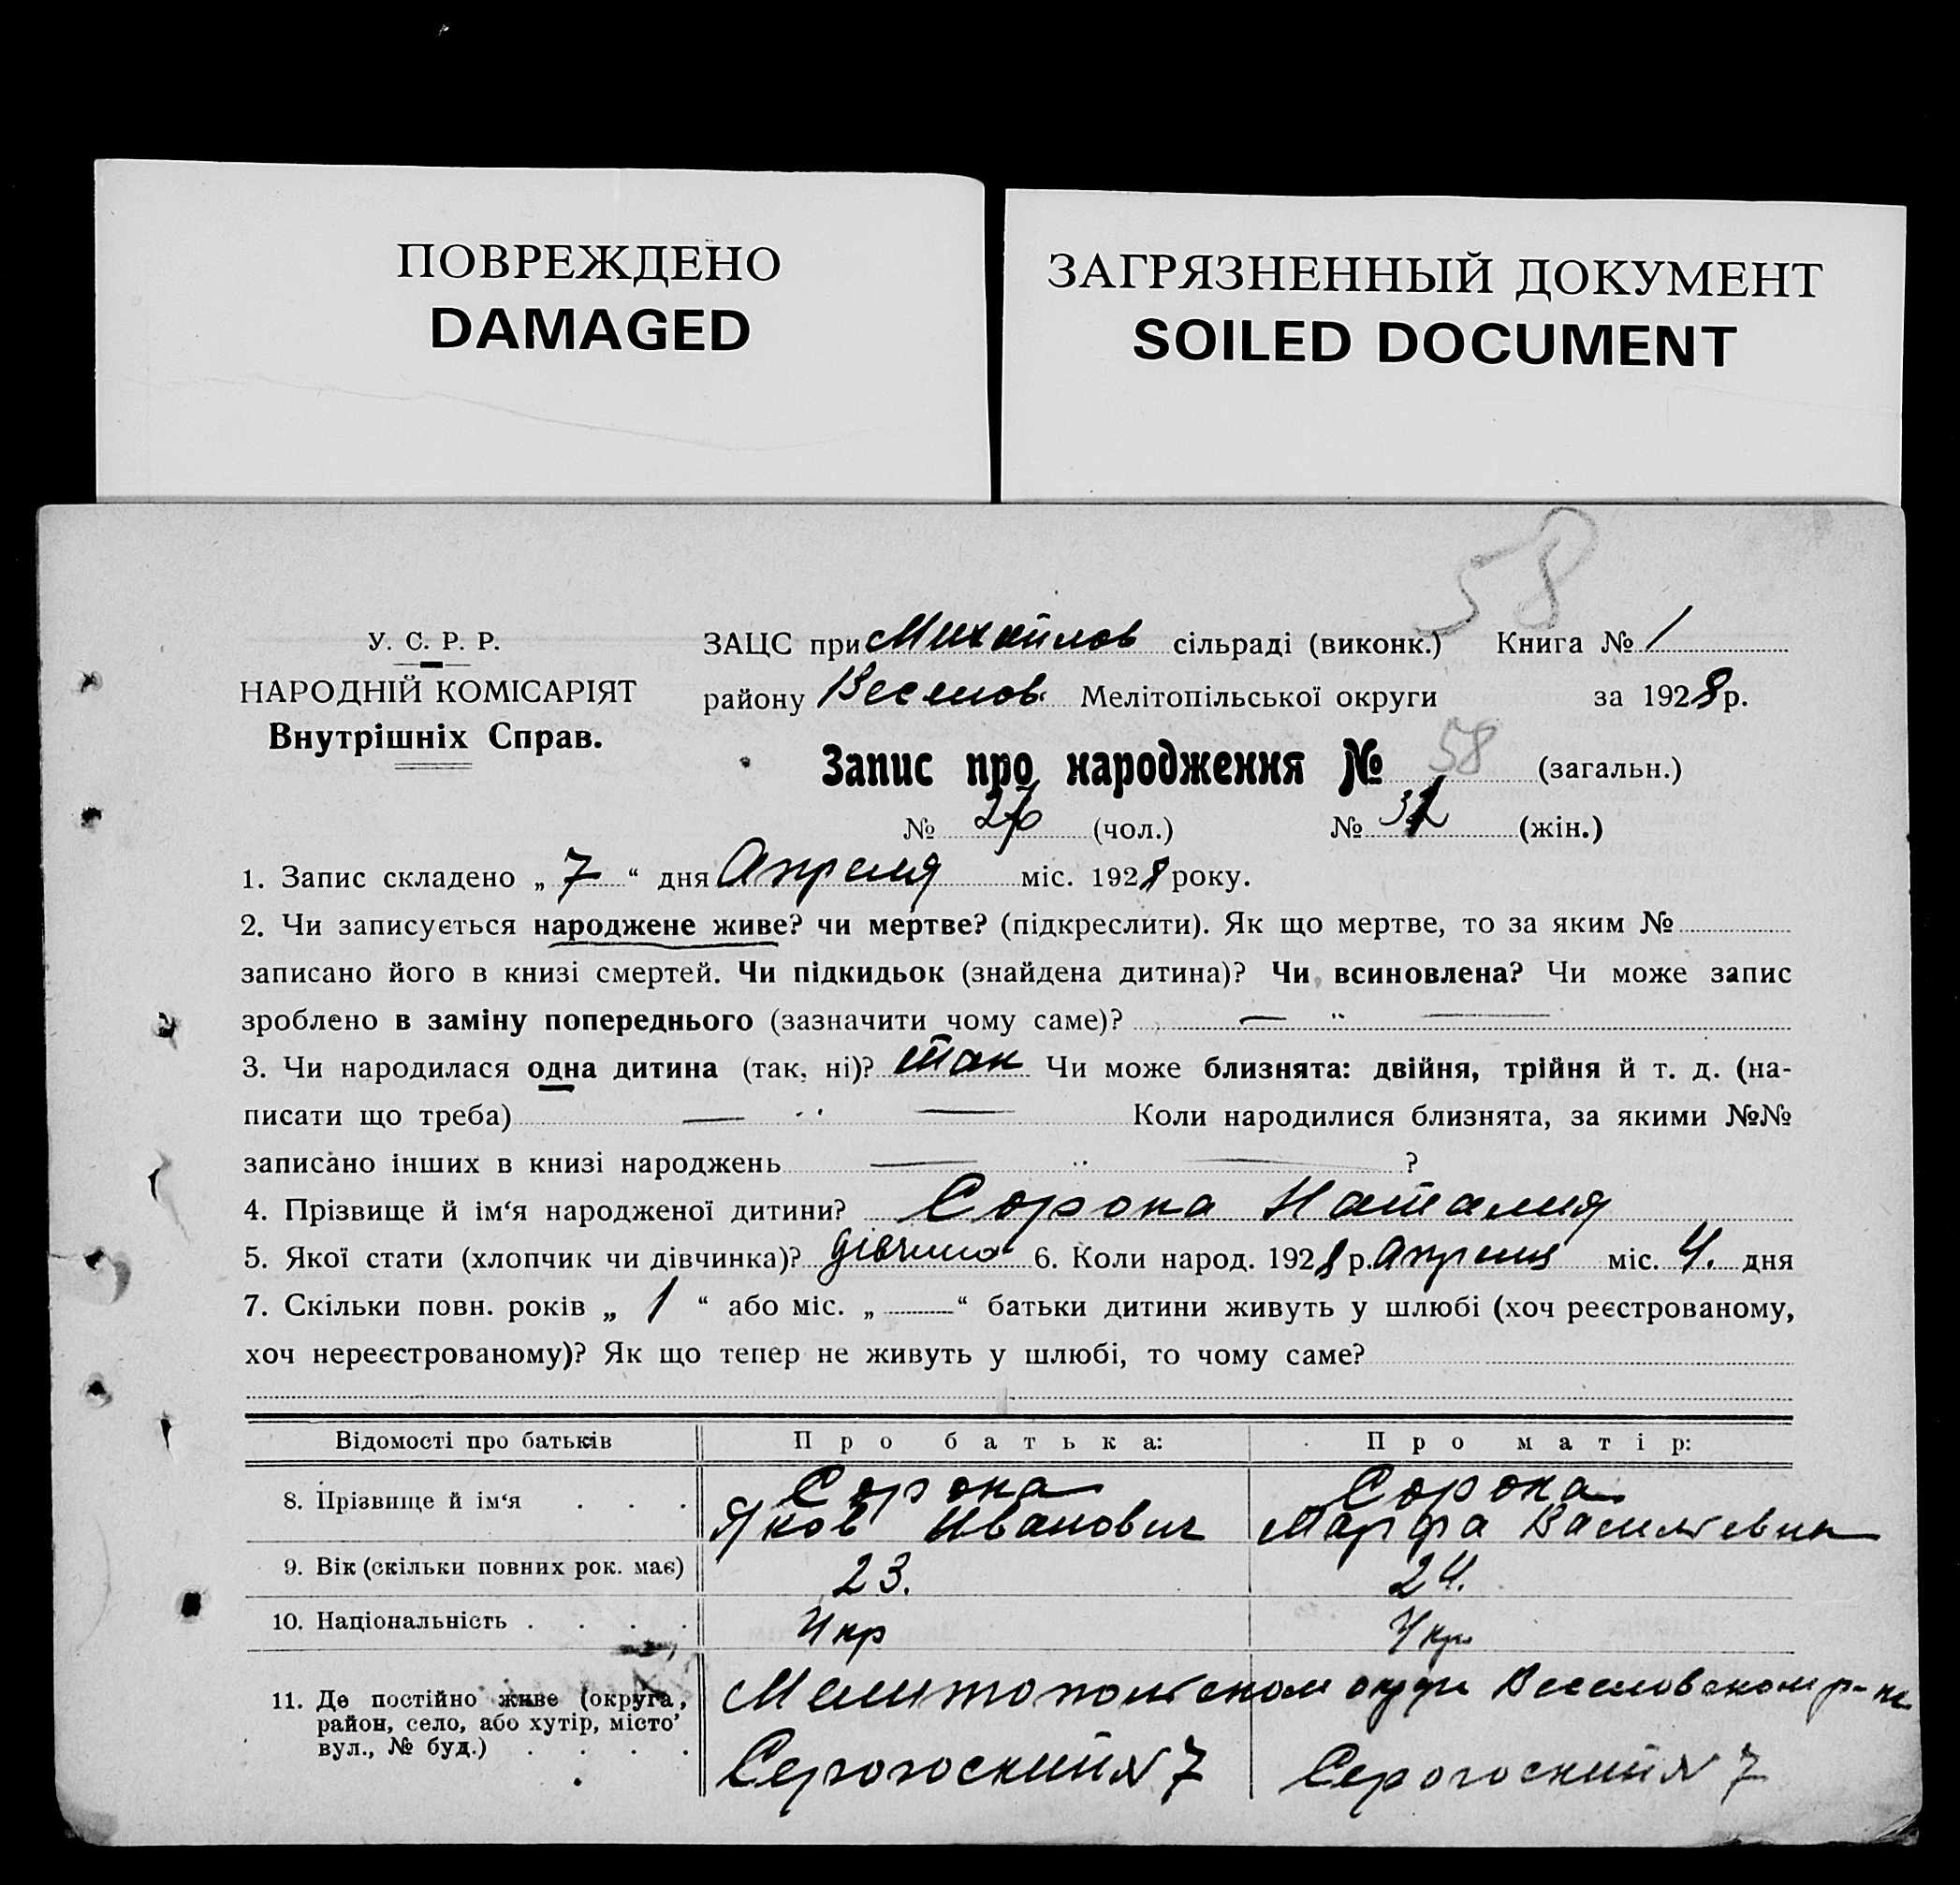 ПОВРЕЖДЕНО
DAMAGED
ЗАГРЯЗНЕННЫЙ ДОКУМЕНТ
SOILED DOCUMENT
58
У. С. Р. Р.
НАРОДНІЙ КОМІСАРІЯТ
Внутрішніх Справ.
ЗАЦС при Михайлов сільраді (виконк.) Книга № 1
району Веселов. Мелітопільської округи за 1928 р.
Запис про народження № 58 (загальн.)
№ (чол.) № (жін.)
1. Запис складено „ 7 “ дня Апреля міс. 1928 року.
2. Чи записується народжене живе? чи мертве? (підкреслити). Як що мертве, то за яким №
записано його в книзі смертей. Чи підкидьок (знайдена дитина)? Чи всиновлена? Чи може запис
зроблено в заміну попереднього (зазначити чому саме)? — „ —
3. Чи народилася одна дитина (так, ні)? так Чи може близнята: двійня, трійня й т. д. (на-
писати що треба) — „ — Коли народилися близнята, за якими №№
записано інших в книзі народжень — „ — ?
4. Прізвище й ім‘я народженої дитини? Сорока Наталия
5. Якої стати (хлопчик чи дівчинка)? 6. Коли народ. 1928 р. апреля міс. 4. дня
7. Скільки повн. років „ 1 “ або міс. „ — “ батьки дитини живуть у шлюбі (хоч реєстрованому,
хоч нереєстрованому)? Як що тепер не живуть у шлюбі, то чому саме?
Відомості про батьків Про батька: Про матір:
8. Прізвище й ім‘я . . . Сорока Яков Иванович Сорока Марфа Васильевна
9. Вік (скільки повних рок. має) 23. 24.
10. Національність . . . . Укр Укр.
11. Де постійно живе (округа, район, село, або хутір, місто, вул., № буд.) . . . . Мелитопольском окр Веселовском р-не
Серогоский № 7 Серогоский № 7